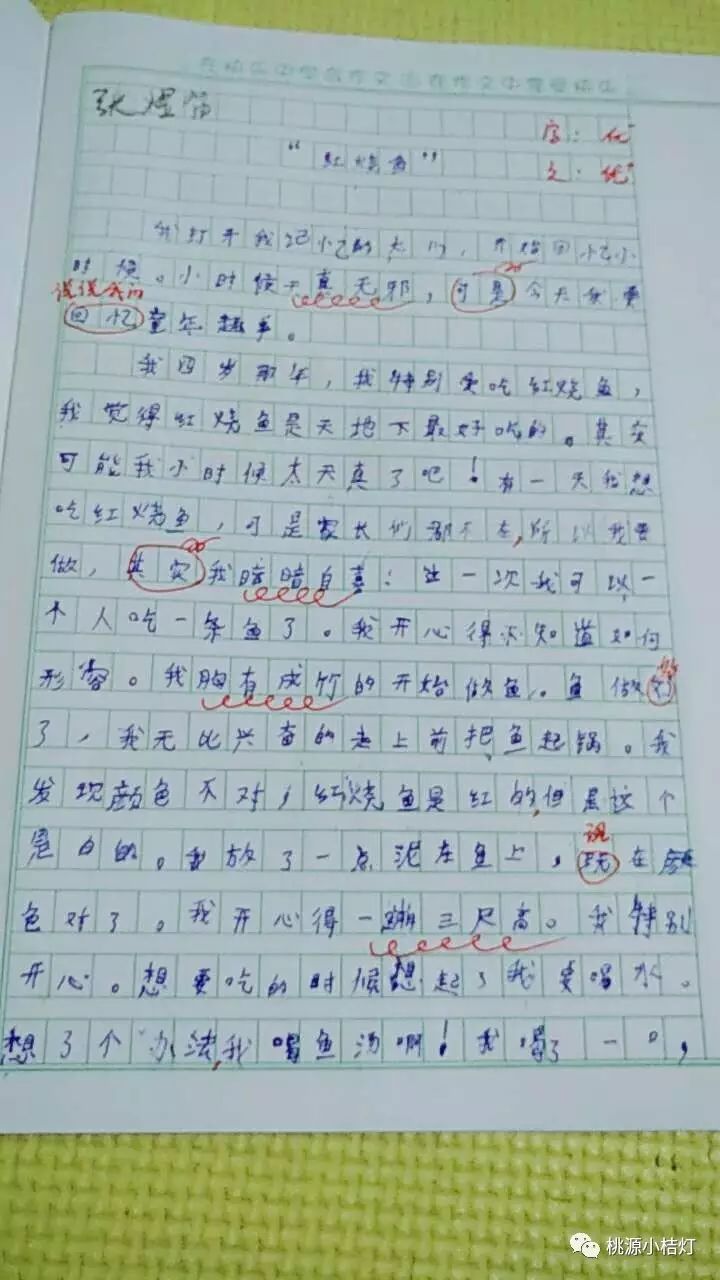 张煜
字：优
"红烧鱼"
文：优
我打开我记忆的大门，开始回忆小
时候。小时候天真无邪，可是今天我要
说说我的
回忆童年趣事。
我四岁那年，我特别爱吃红烧鱼，
我觉得红烧鱼是天地下最好吃的。其实
可能我小时候太天真了吧！有一天我想
吃红烧鱼，可是家长们都不在，所以我要
做，其实我暗暗自喜：这一次我可以一
个人吃一条鱼了。我开心得不知道如何
形容。我胸有成竹的开始做鱼。鱼做
了，我无比兴奋的走上前把鱼起锅。我
发现颜色不对，红烧鱼是红的，但是这个
是白的。我放了一点泥在鱼上，现在颜
现
色对了。我开心得一蹦三尺高。我特别
开心。想要吃的时候想起了我要喝水。
想了个办法，我喝鱼汤啊！我喝了一口，
桃源小桔灯